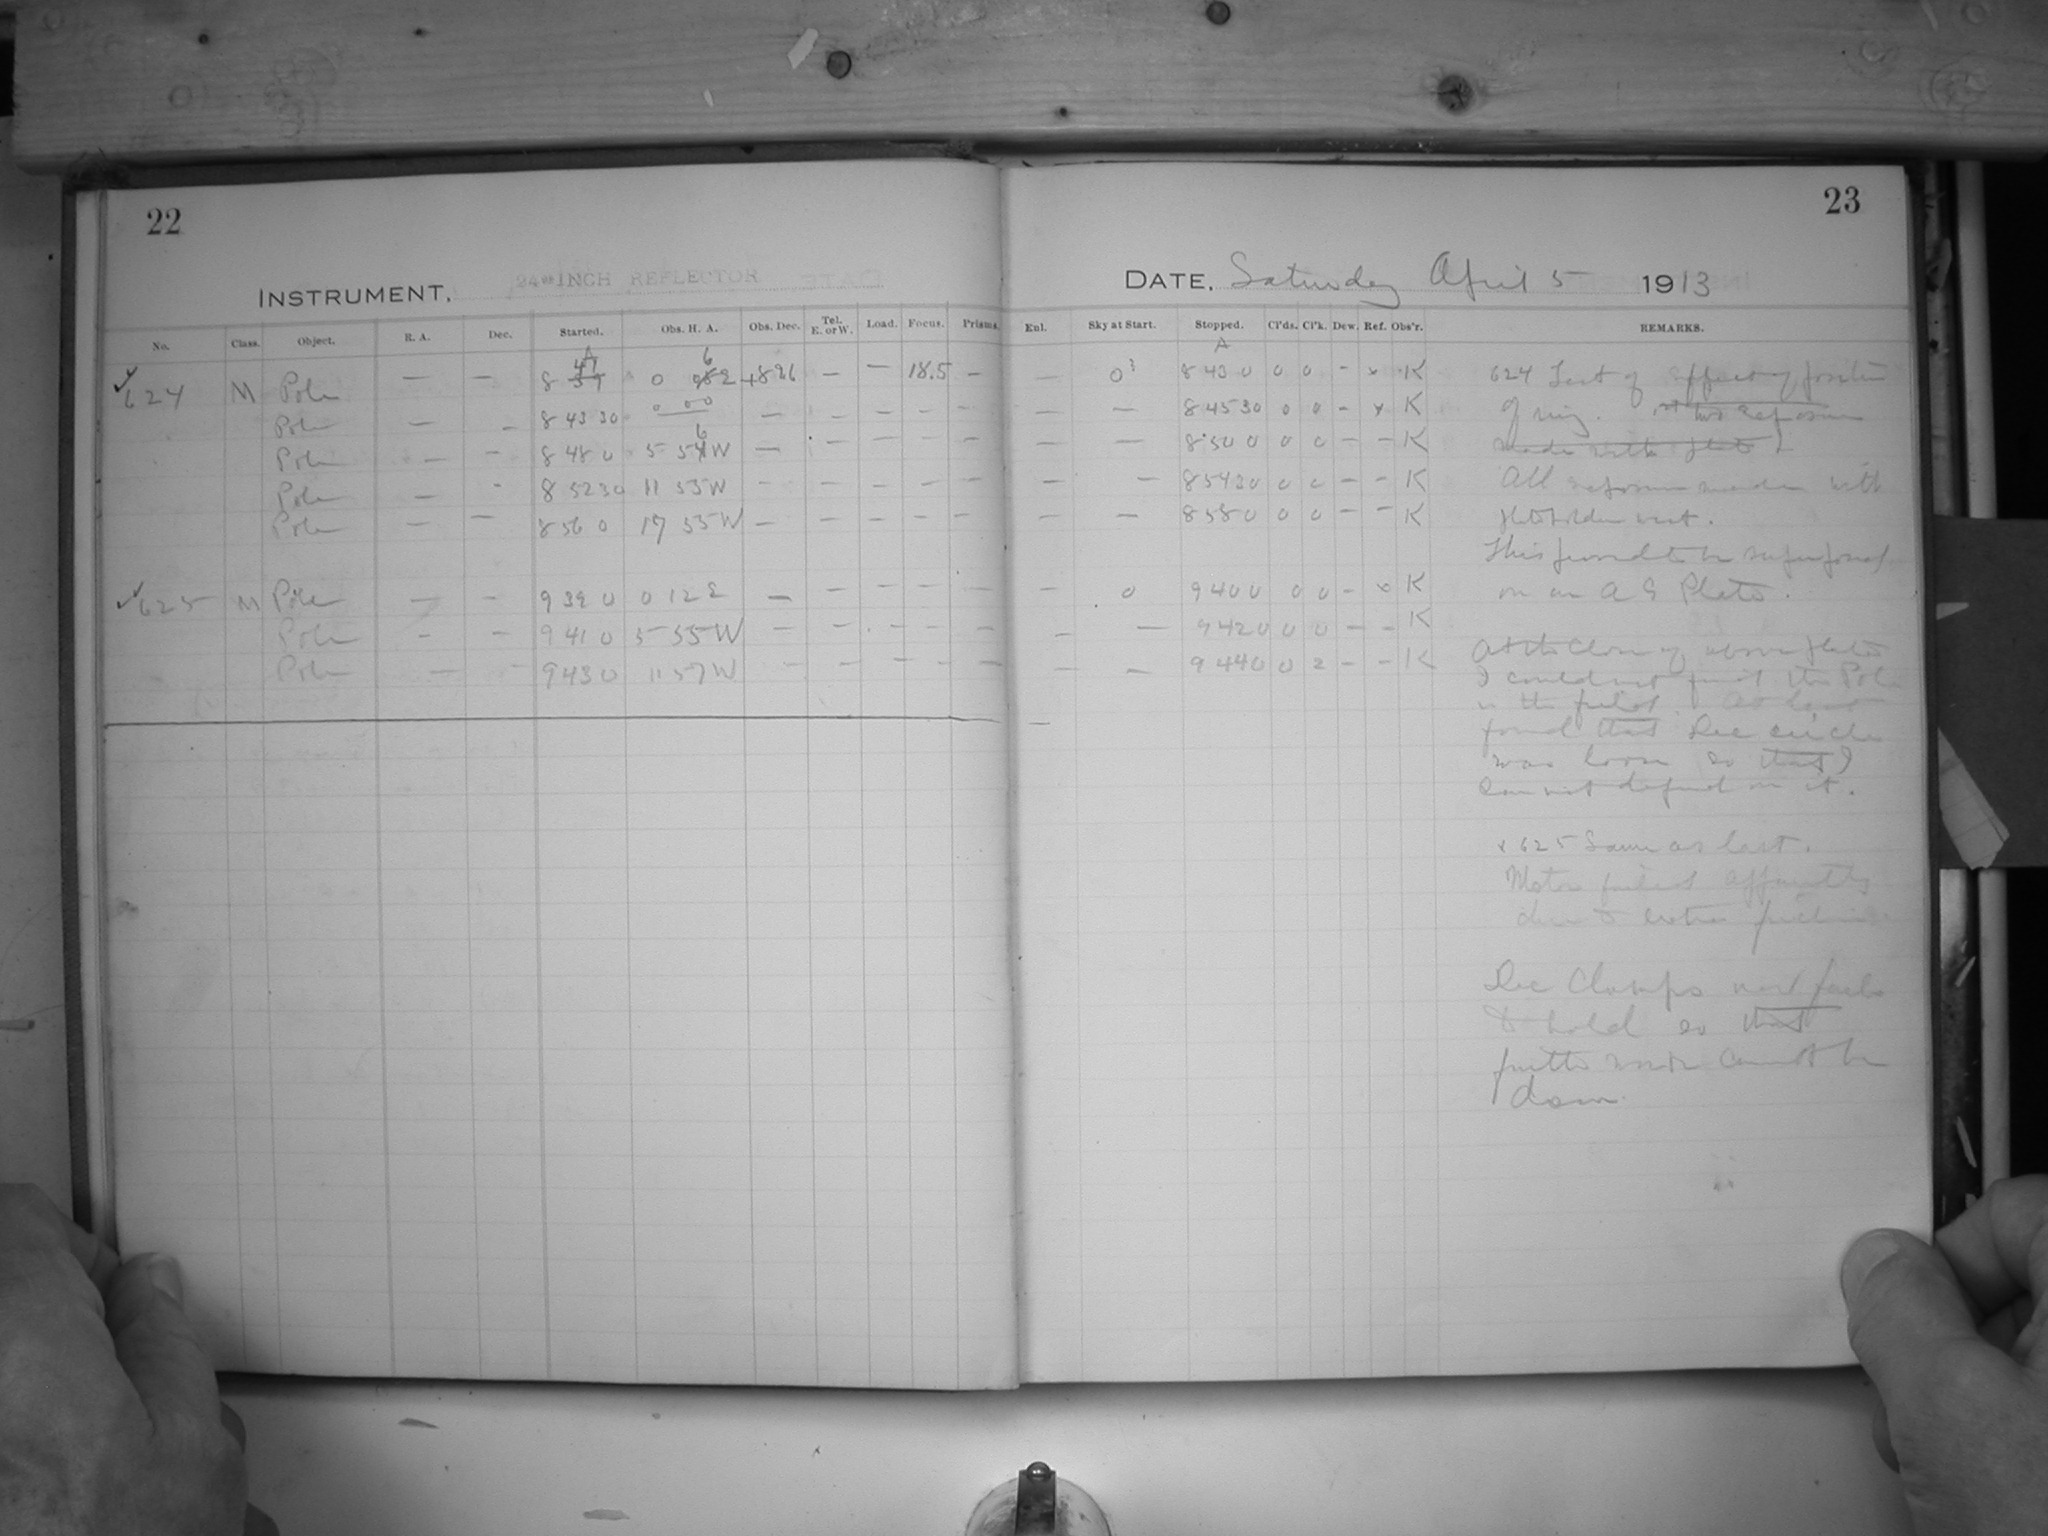 22
23
INSTRUMENT, 24-INCH REFLECTOR
DATE, Saturday April 5 1913
No. Class. Object. R. A. Dec. Started. Obs. H. A. Obs. Dec. Tel. E. or W. Load. Focus. Prisms.
Enl. Sky at Start. Stopped. Cl'ds. Cl'k. Dew. Ref. Obs'r. REMARKS.
624 M Pole — — 8 +826 — — 18.5 —
— 8 43 0 0 0 - x K
Pole — - 8 43 30 —
— — 8 45 30 0 0 - x K
Pole — — 8 48 0 5 W —
— — 8 50 0 0 0 — — K
Pole — - 8 52 30 11 55 W - — — — —
— — 8 54 30 0 0 — — K
Pole — — 8 56 0 17 55 W — — — — — —
— — 8 58 0 0 0 — — K
625 M Pole — - 9 39 0 0 12 E — — — — —
— 0 9 40 0 0 0 - x K
Pole - — 9 41 0 5 55 W — — — — — —
— — 9 42 0 0 0 — — K
Pole — — 9 43 0 11 57 W — — — — — —
— — 9 44 0 0 2 — — K
—
624 Test of effect of position
of ring. two exposures
made with plate
All exposures made with
plateholder west.
This found to be superposed
on an A G Plate.
At the close of above plate
I could not find the Pole
in the field. At last
found that Dec circle
was loose so that I
can not depend on it.
x 625 Same as last.
Motor failed apparently
due to extra friction
Dec Clamps fails
to hold so that
further work cannot be
done.